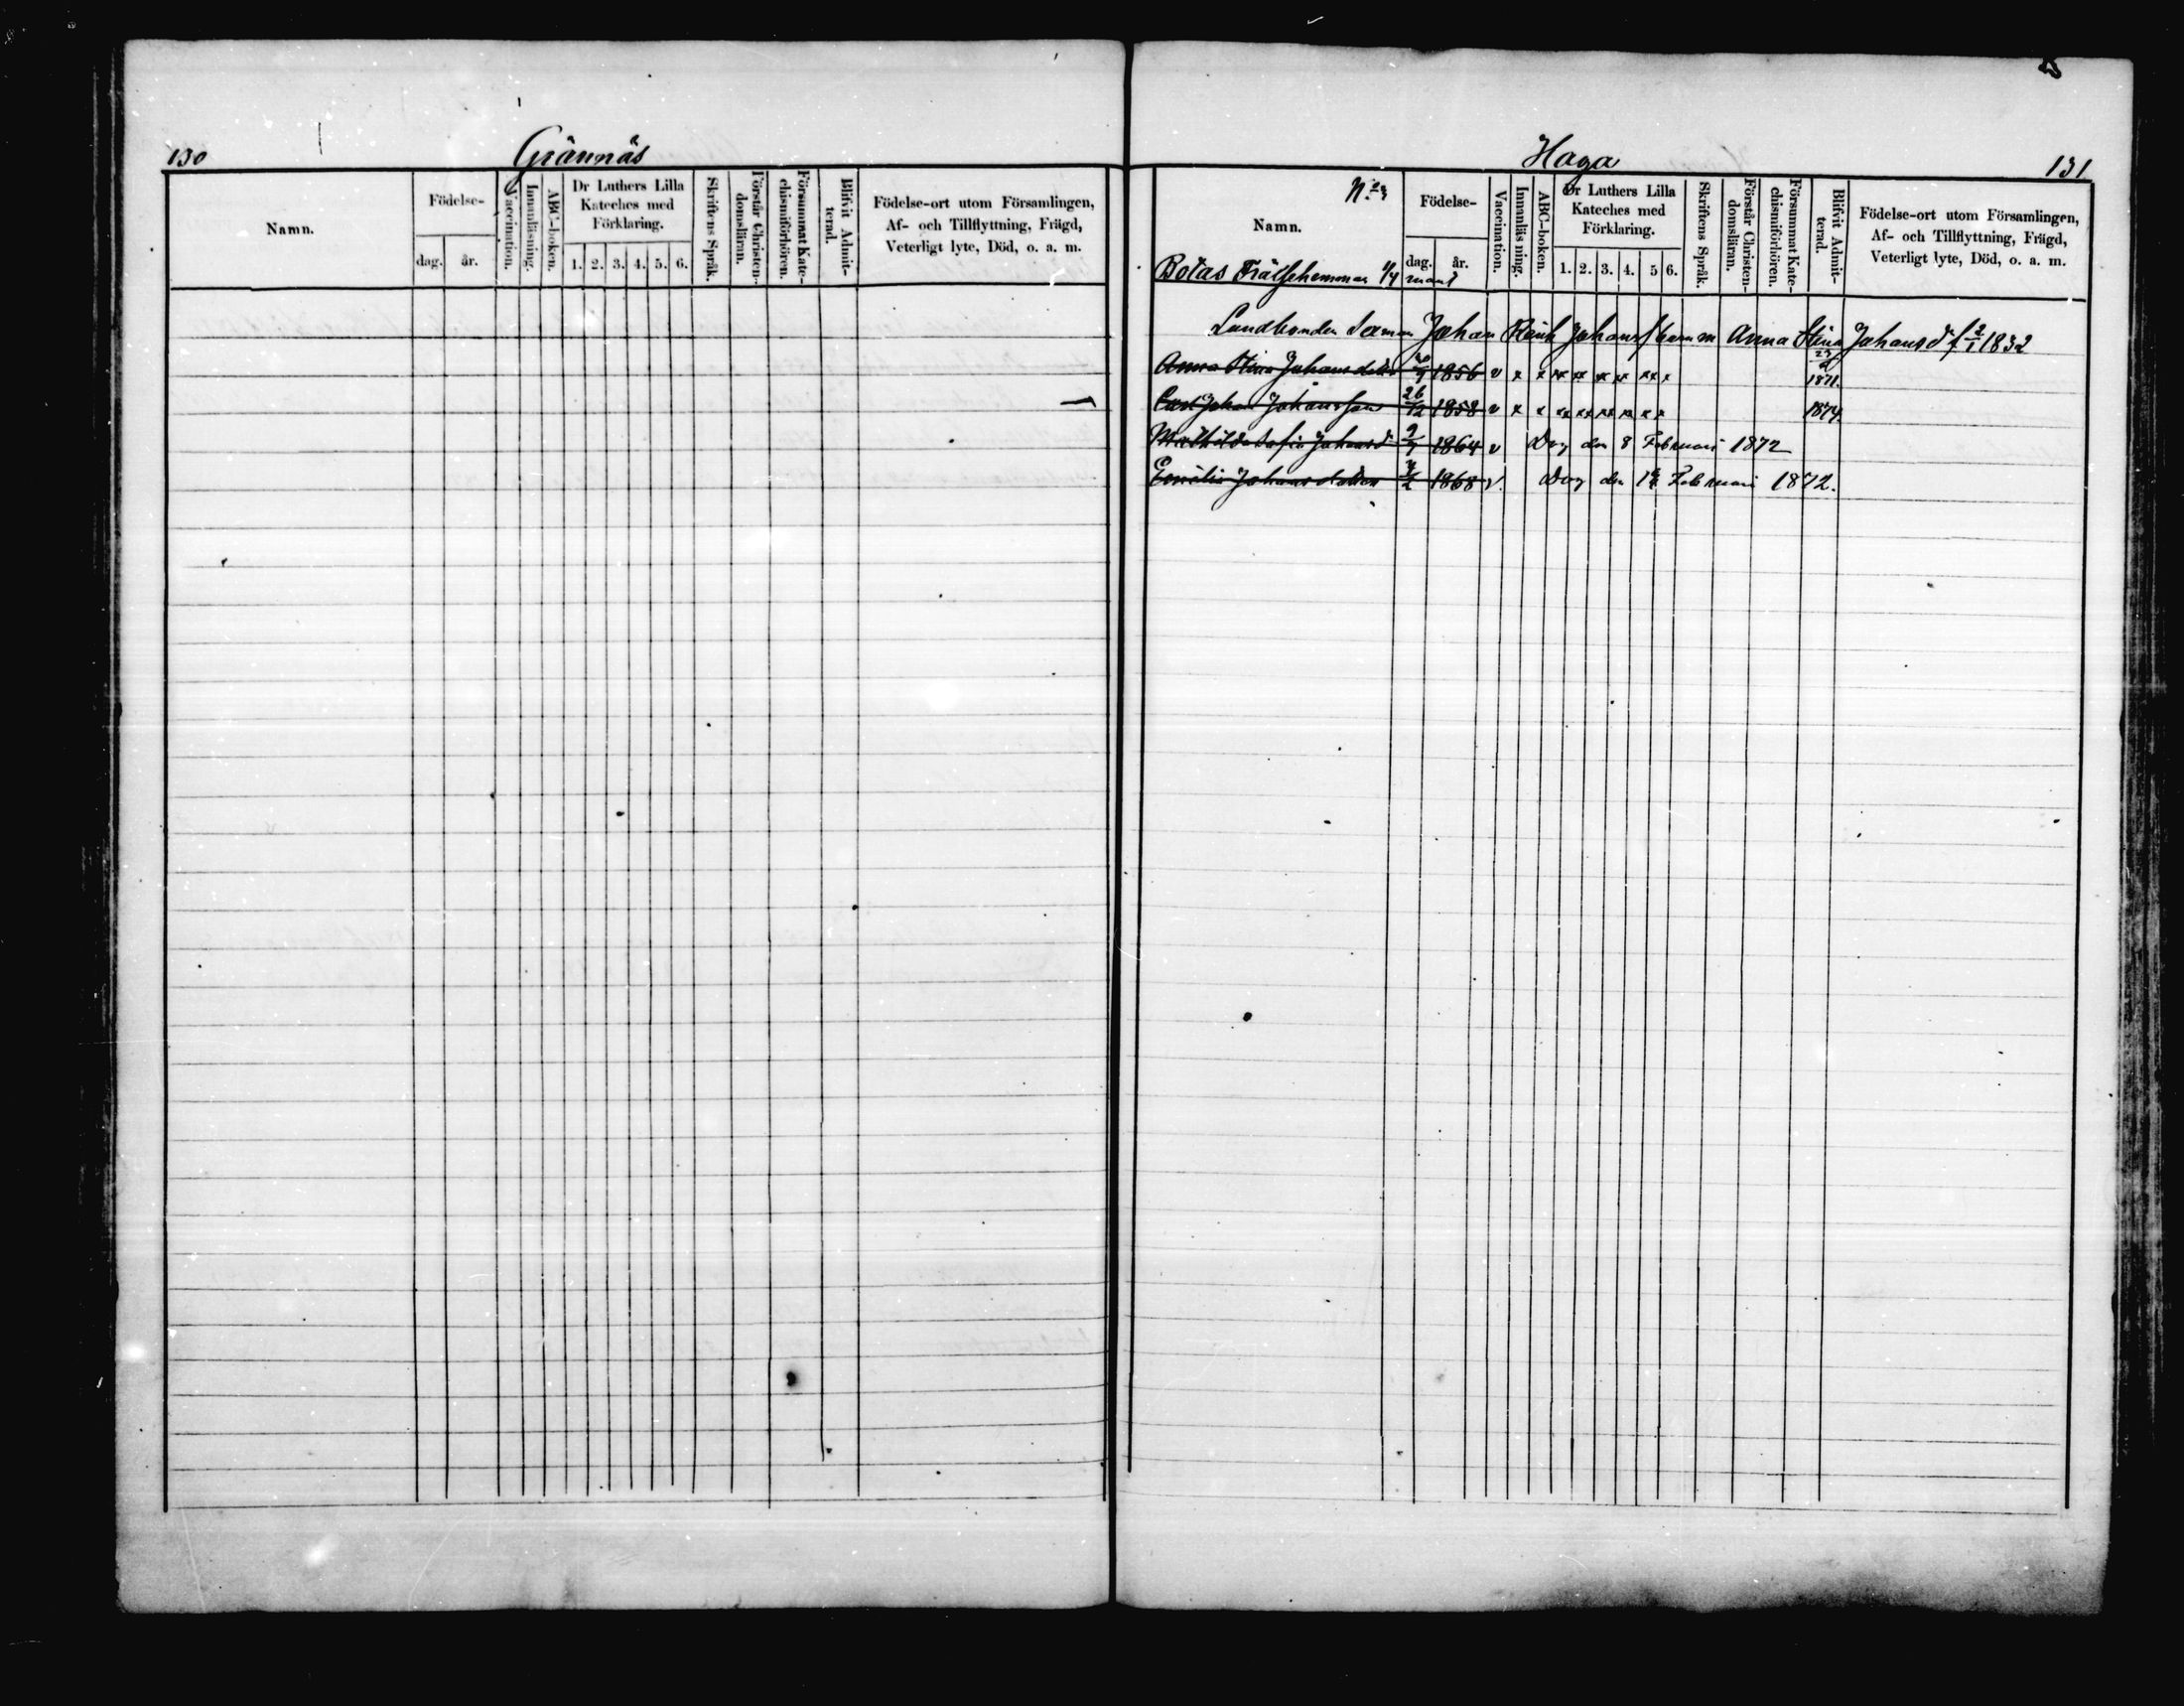 130
Grännäs
Namn.
Födelse-
dag. år.
Vaccination.
Innanläsning.
ABC-boken.
Dr Luthers Lilla
Kateches med
Förklaring.
1. 2. 3. 4. 5. 6.
Skriftens Språk.
Förstår Christen-
domsläran.
Försummat Kate-
chismiförhören.
Blifvit Admit-
terad.
Födelse-ort utom Församlingen,
Af- och Tillflyttning, Frägd,
Veterligt lyte, Död, o. a. m.
Haga
131
Namn.
Födelse-
dag. år.
Vaccination.
Innanläsning.
ABC-boken.
Dr Luthers Lilla
Kateches med
Förklaring.
1. 2. 3. 4. 5 6.
Skriftens Språk.
Förstår Christen-
domsläran.
Försummat Kate-
chismiförhören.
Blifvit Admit-
terad.
Födelse-ort utom Församlingen,
Af- och Tillflyttning, Frägd,
Veterligt lyte, Död, o. a. m.
Botas Frälsehemman 1/4 mant
Landbonden Johan Johans barn m Anna Stina Johansd f 2/1 1832
Anna Stina Johansdotter 1856 v x x xx xx xx xx xx x 1871.
Carl Johan Johansson 26/12 1858 v x x xx xx xx xx x x 1874.
Mathilda Sofia Johansd 1864 v Dog den 8 Februari 1872
Emilia Johansdotter 1868 v. Dog den Februari 1872.